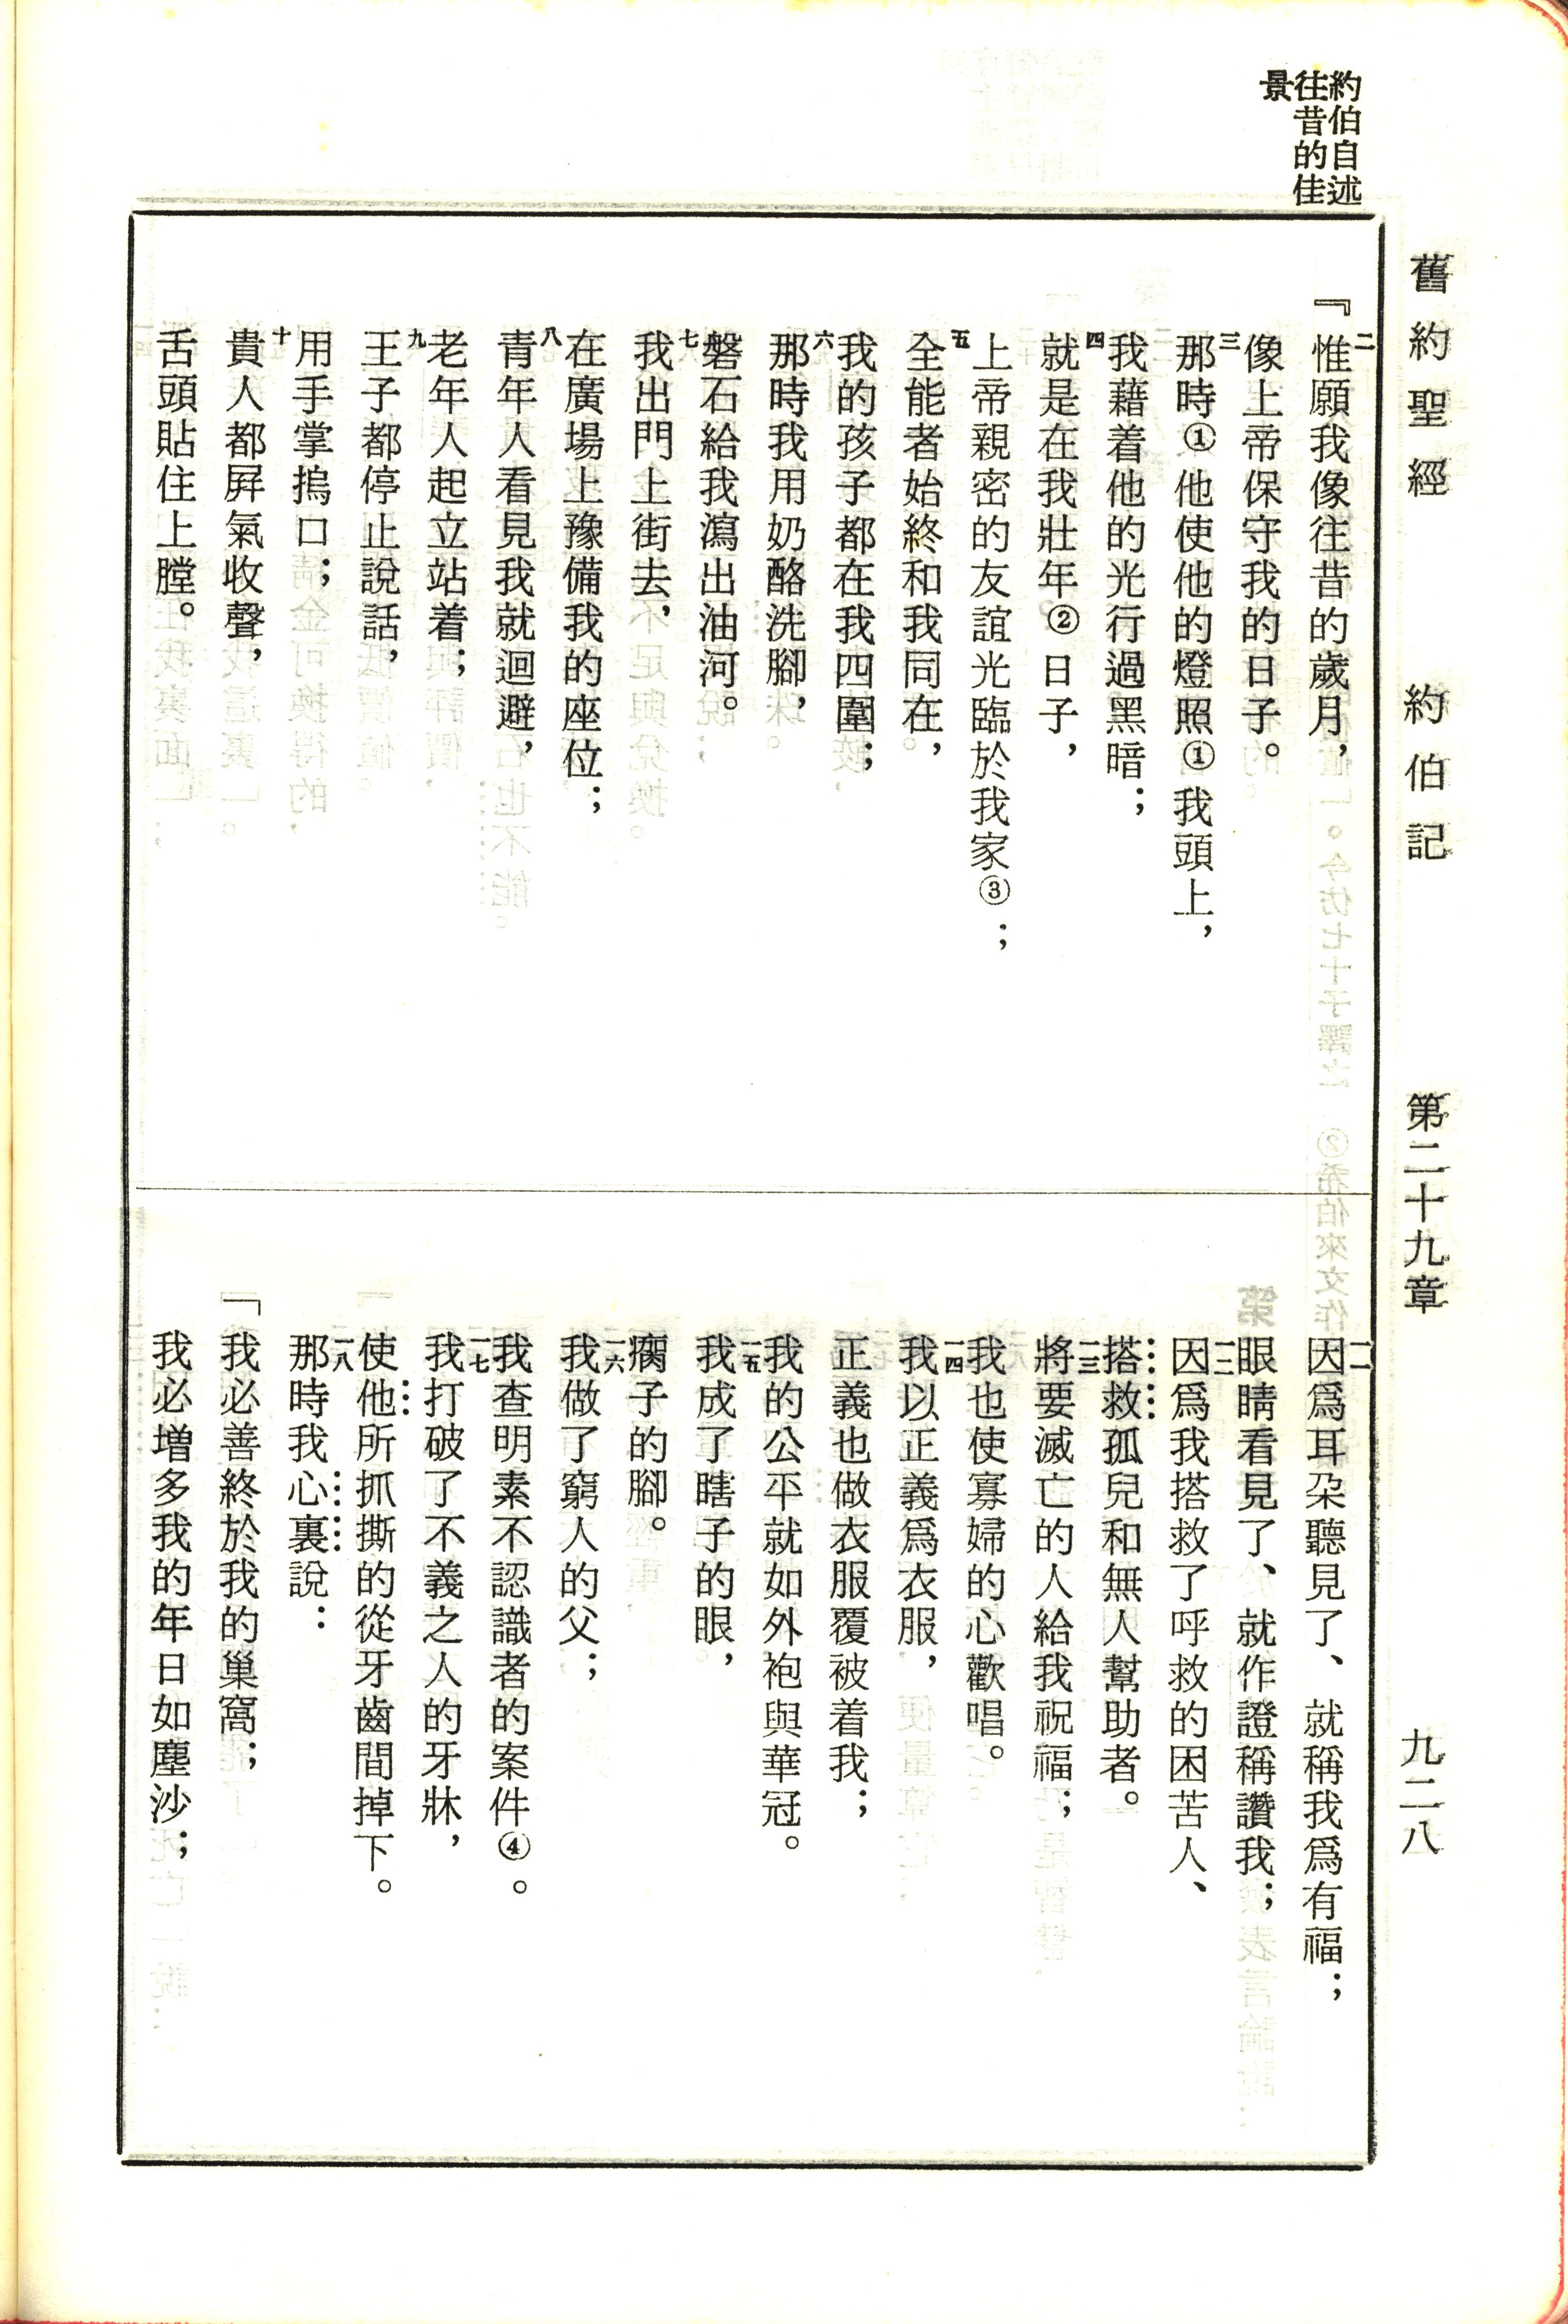 舊約聖經　約伯記　第二十九章　九二八
約伯自述
往昔的佳
景
二『惟願我像往昔的歲月，
像上帝保守我的日子。
三那時①他使他的燈照①我頭上，
我藉着他的光行過黑暗；
四就是在我壯年②日子，
上帝親密的友誼光臨於我家③；
五全能者始終和我同在，
我的孩子都在我四圍；
六那時我用奶酪洗腳，
磐石給我瀉出油河。
七我出門上街去，
在廣場上豫備我的座位；
八青年人看見我就迴避，
老年人起立站着；
九王子都停止說話，
用手掌摀口；
十貴人都屏氣收聲，
舌頭貼住上膛。
一一因爲耳朶聽見了、就稱我爲有福；
眼睛看見了、就作證稱讚我；
一二因爲我搭救了呼救的困苦人、
搭救孤兒和無人幫助者。
一三將要滅亡的人給我祝福；
我也使寡婦的心歡唱。
一四我以正義爲衣服，
正義也做衣服覆被着我；
我的公平就如外袍與華冠。
一五我成了瞎子的眼，
瘸子的腳。
一六我做了窮人的父；
我查明素不認識者的案件④。
一七我打破了不義之人的牙牀，
使他所抓撕的從牙齒間掉下。
一八那時我心裏說：
「我必善終於我的巢窩；
我必增多我的年日如塵沙；